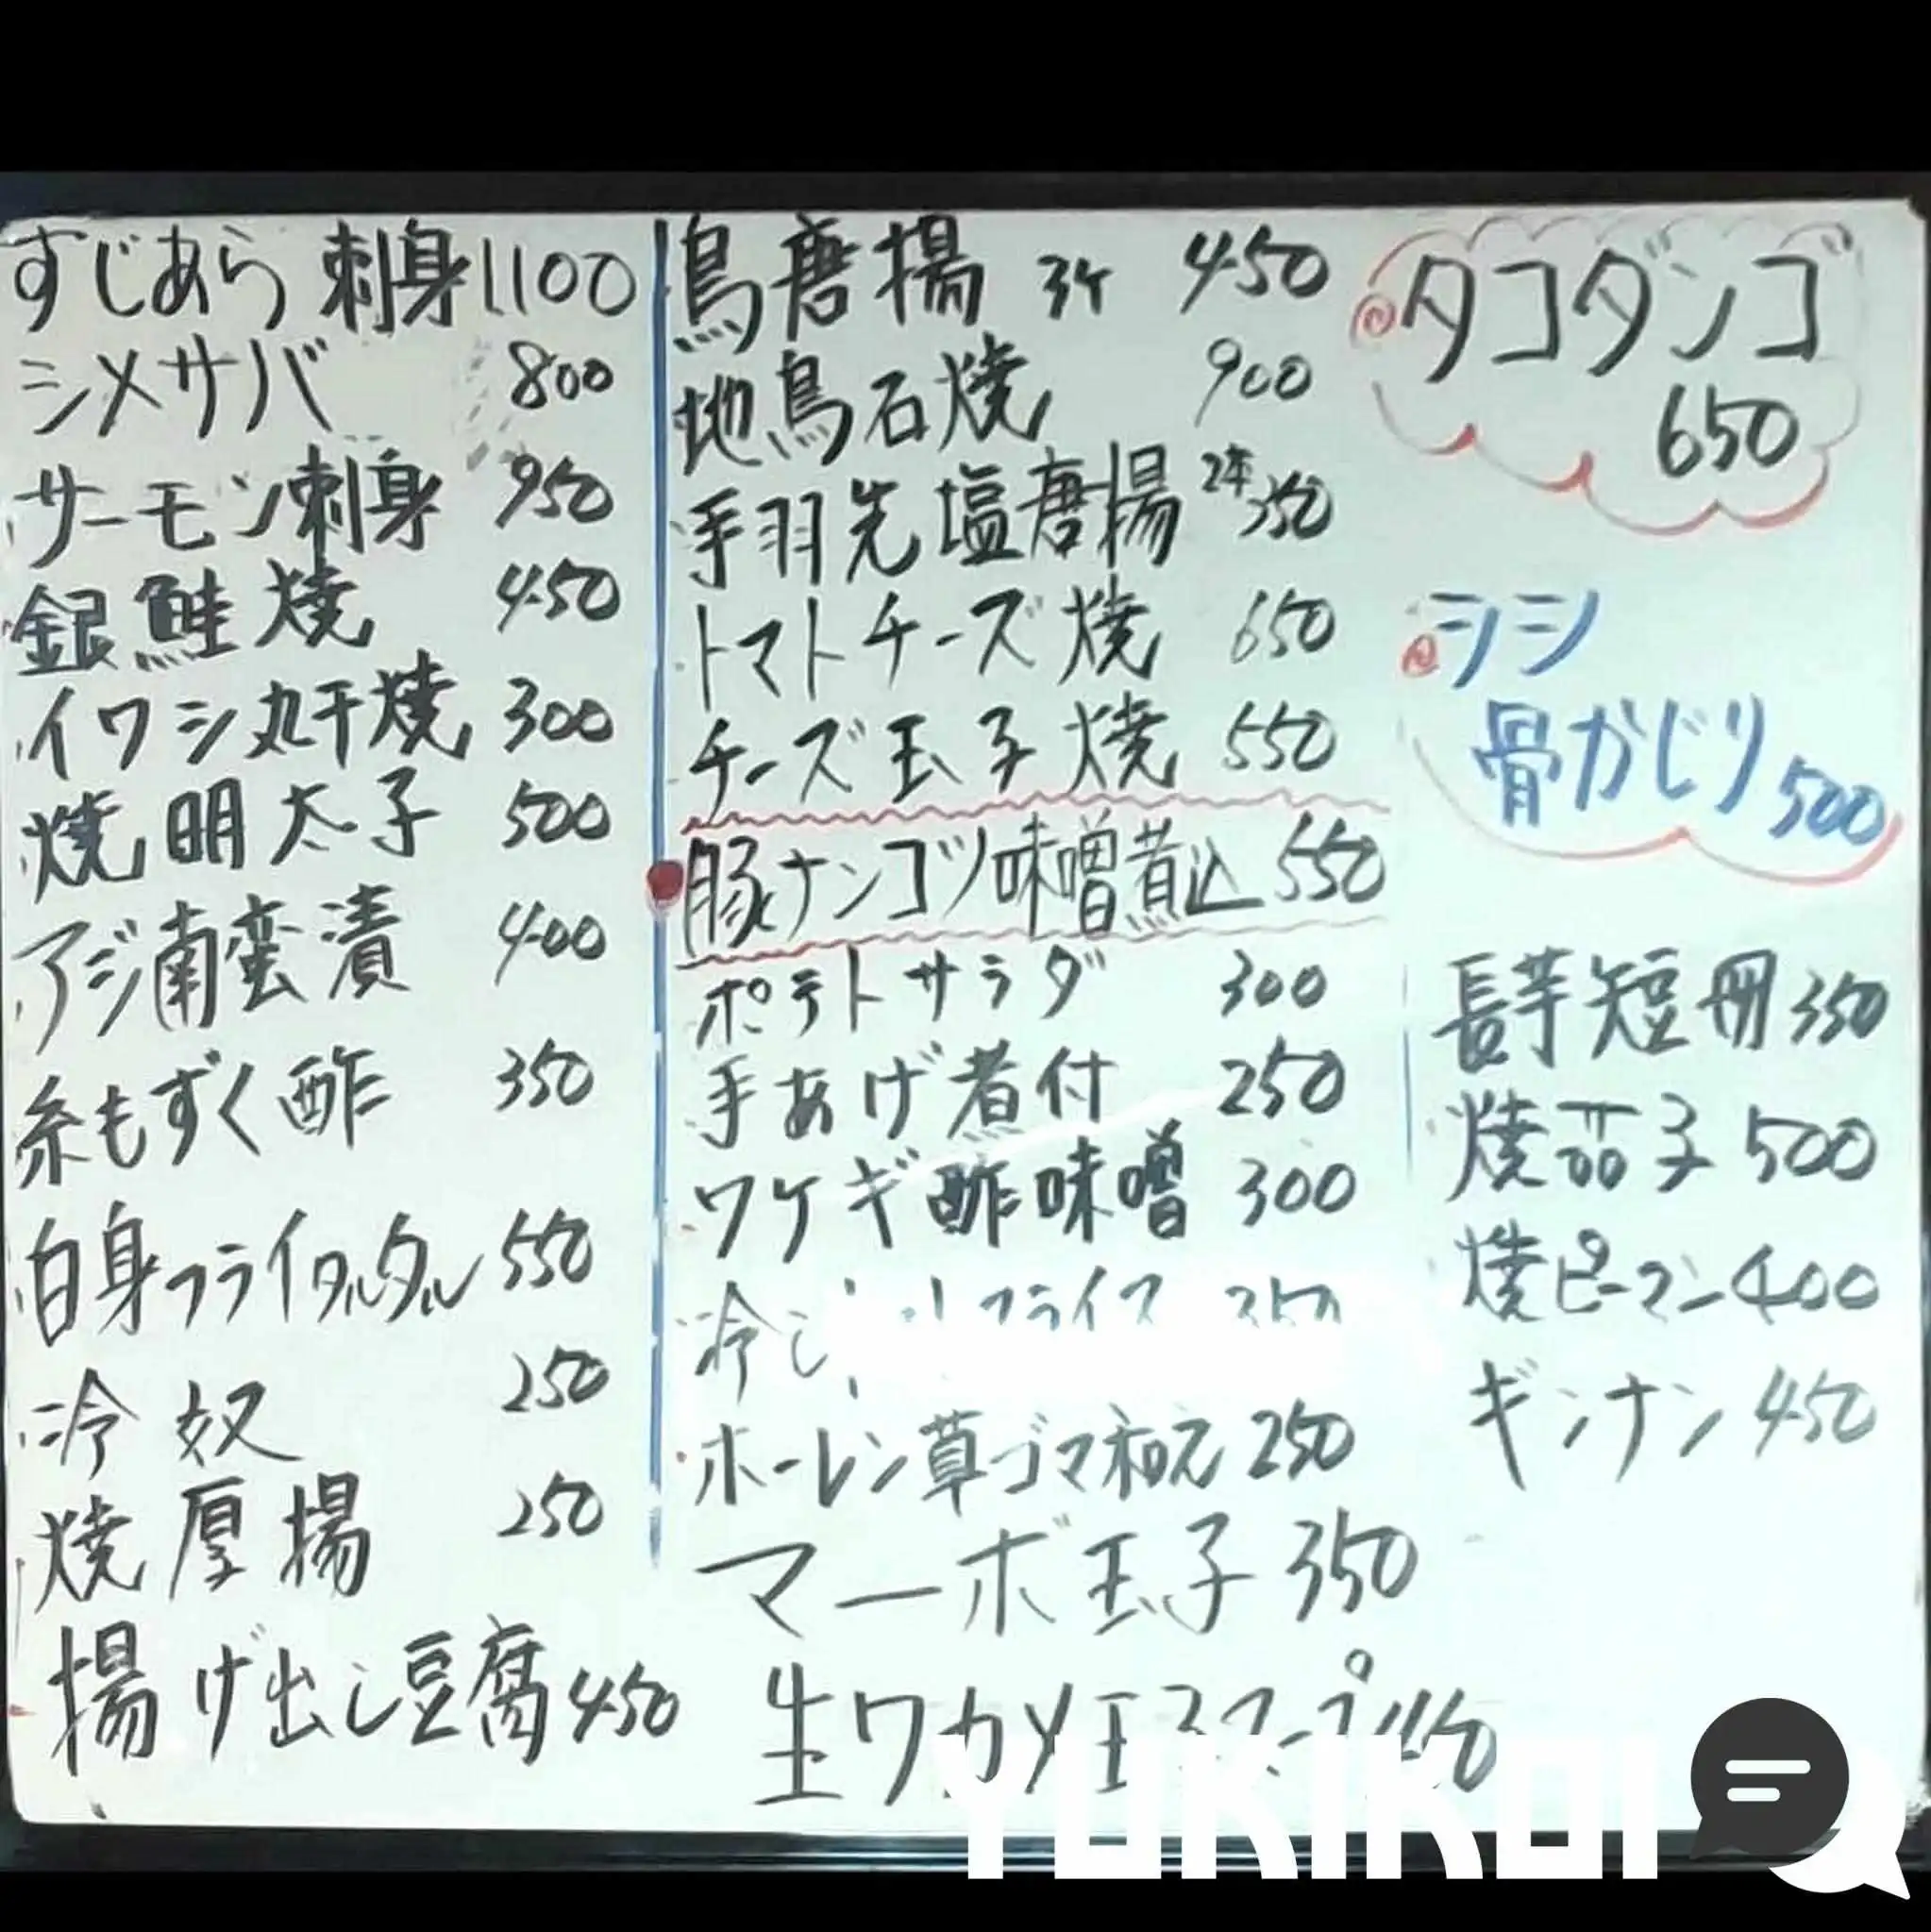 すじあら 刺身 1100
シメサバ 800
サーモン刺身 950
銀鮭焼 450
イワシ丸干焼 300
焼明太子 500
アジ南蛮漬 400
糸もずく酢 350
白身フライタルタル 550
冷奴 250
焼厚揚 250
揚げ出し豆腐 450
鳥唐揚 3ケ 450
地鳥石焼 900
手羽先塩唐揚 2本 350
トマトチーズ焼 650
チーズ玉子焼 550
豚ナンコツ味噌煮込 550
ポテトサラダ 300
手あげ煮付 250
ワケギ酢味噌 300
冷し 350
ホーレン草ゴマ和え 250
マーボ玉子 350
生ワカメ玉子スープ
タコダンゴ
650
シシ
骨かじり 500
長芋短冊 350
焼茄子 500
焼ピーマン 400
ギンナン 450
YUKIKOI